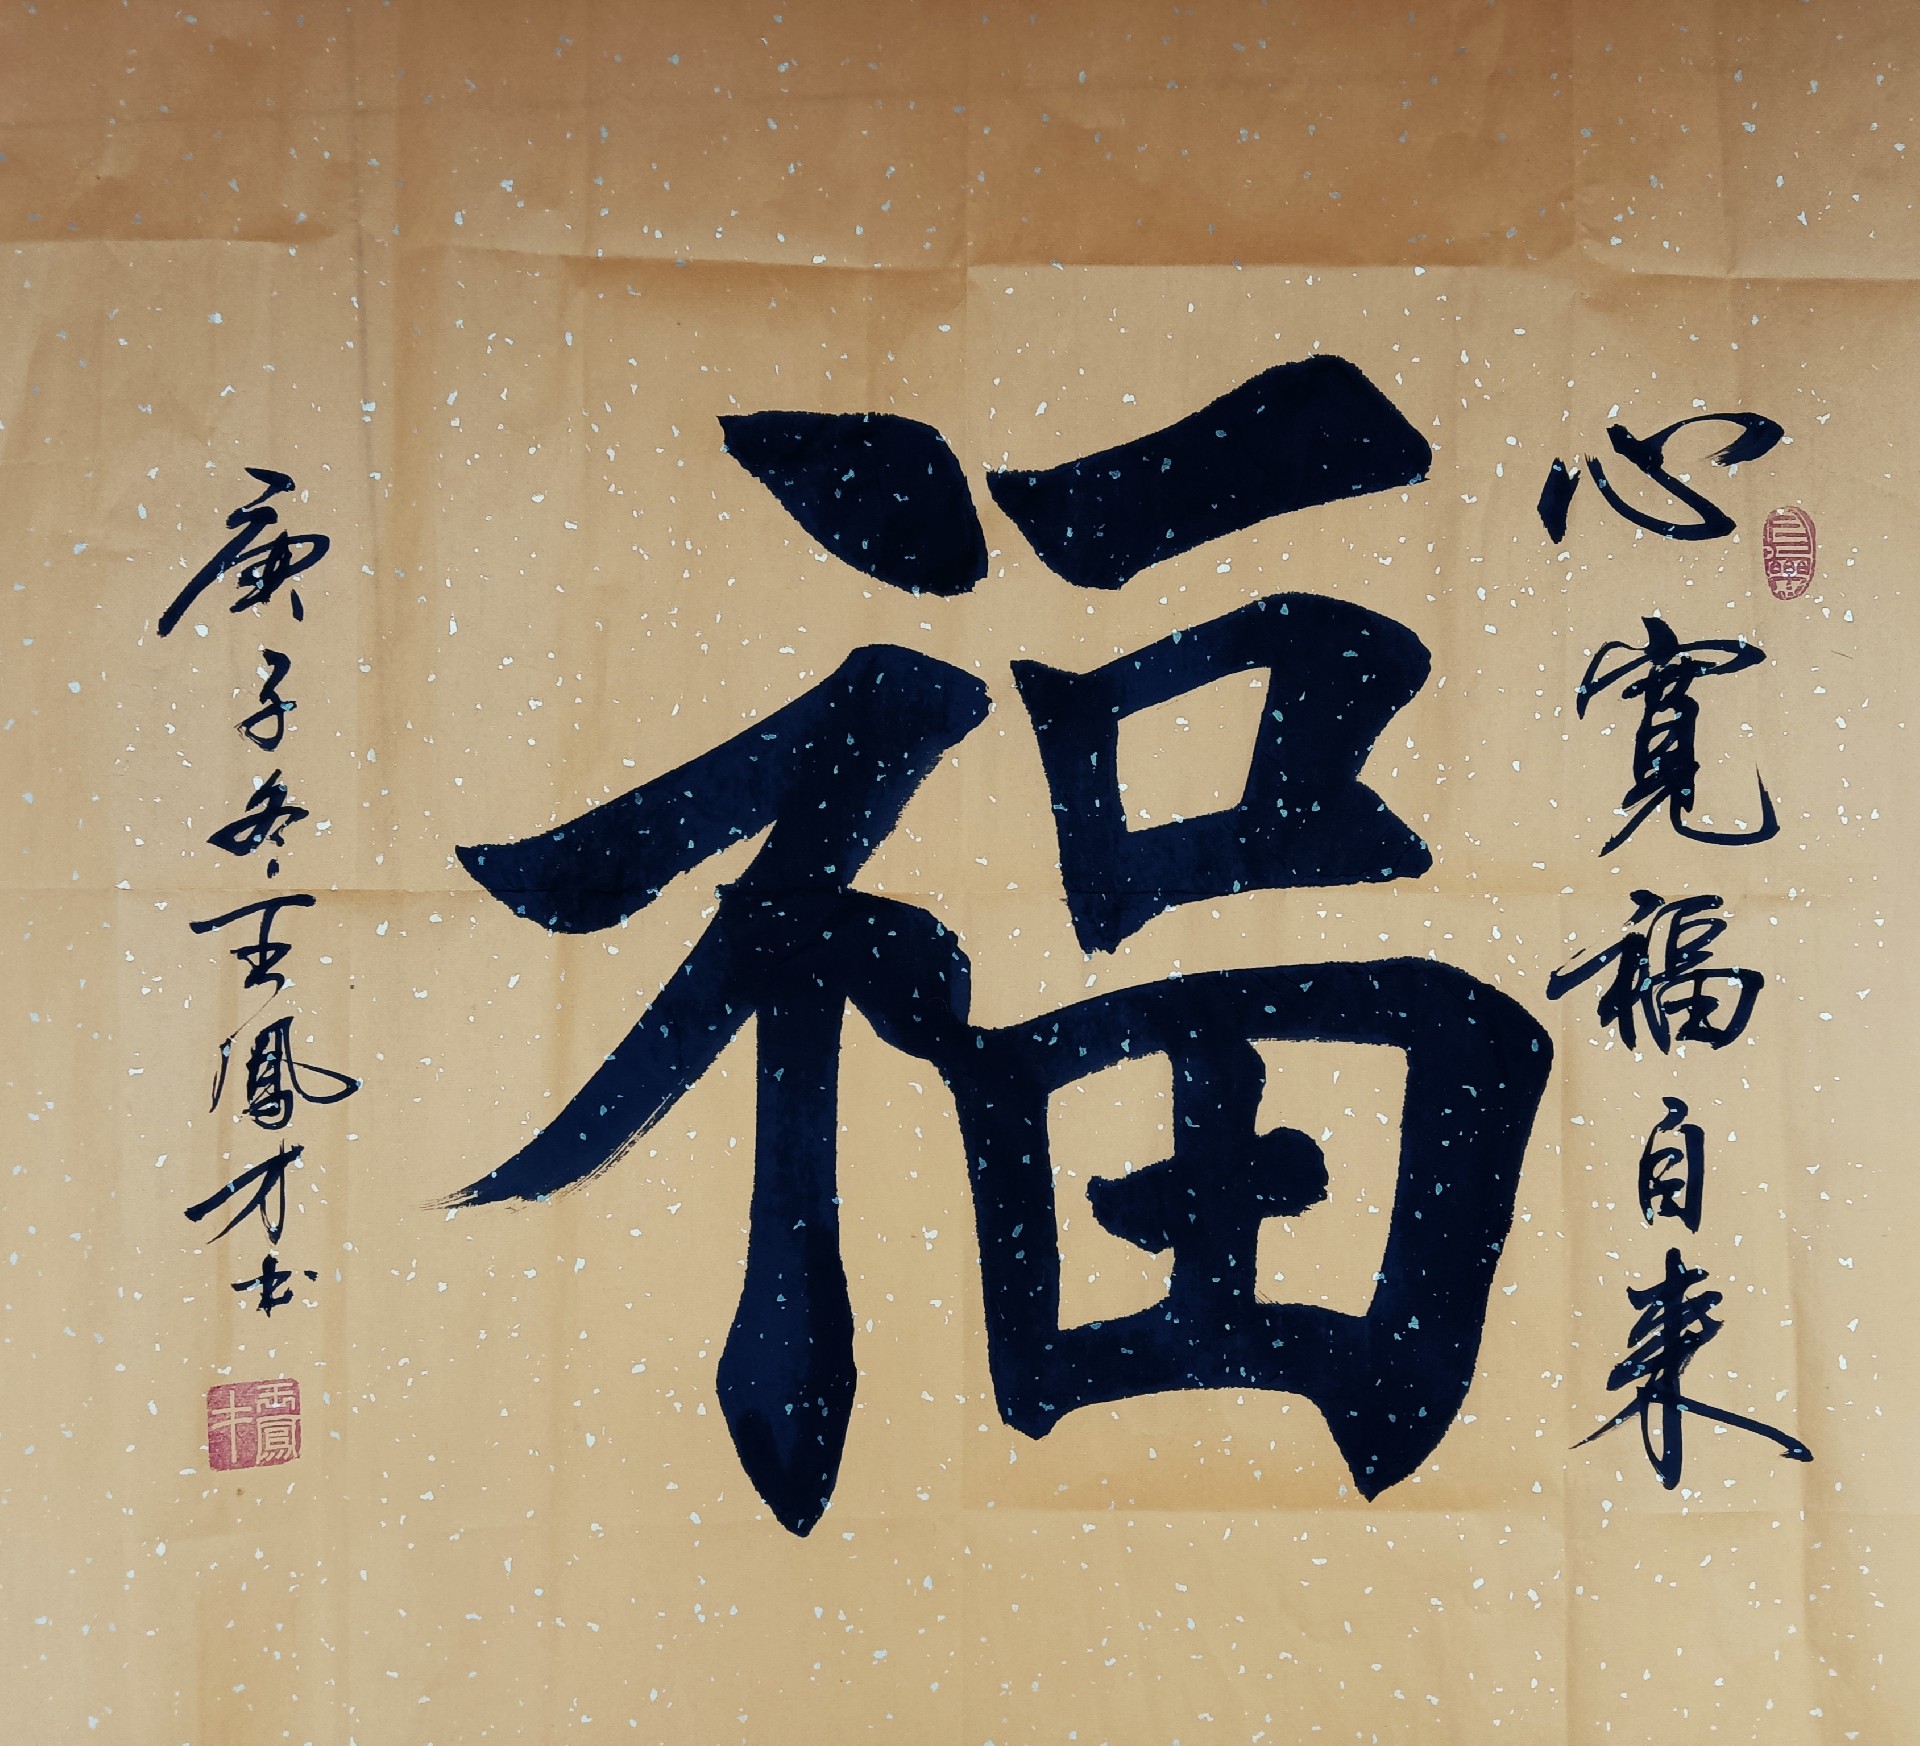 心寬福自来
福
庚子冬王鳳才书
王鳳才